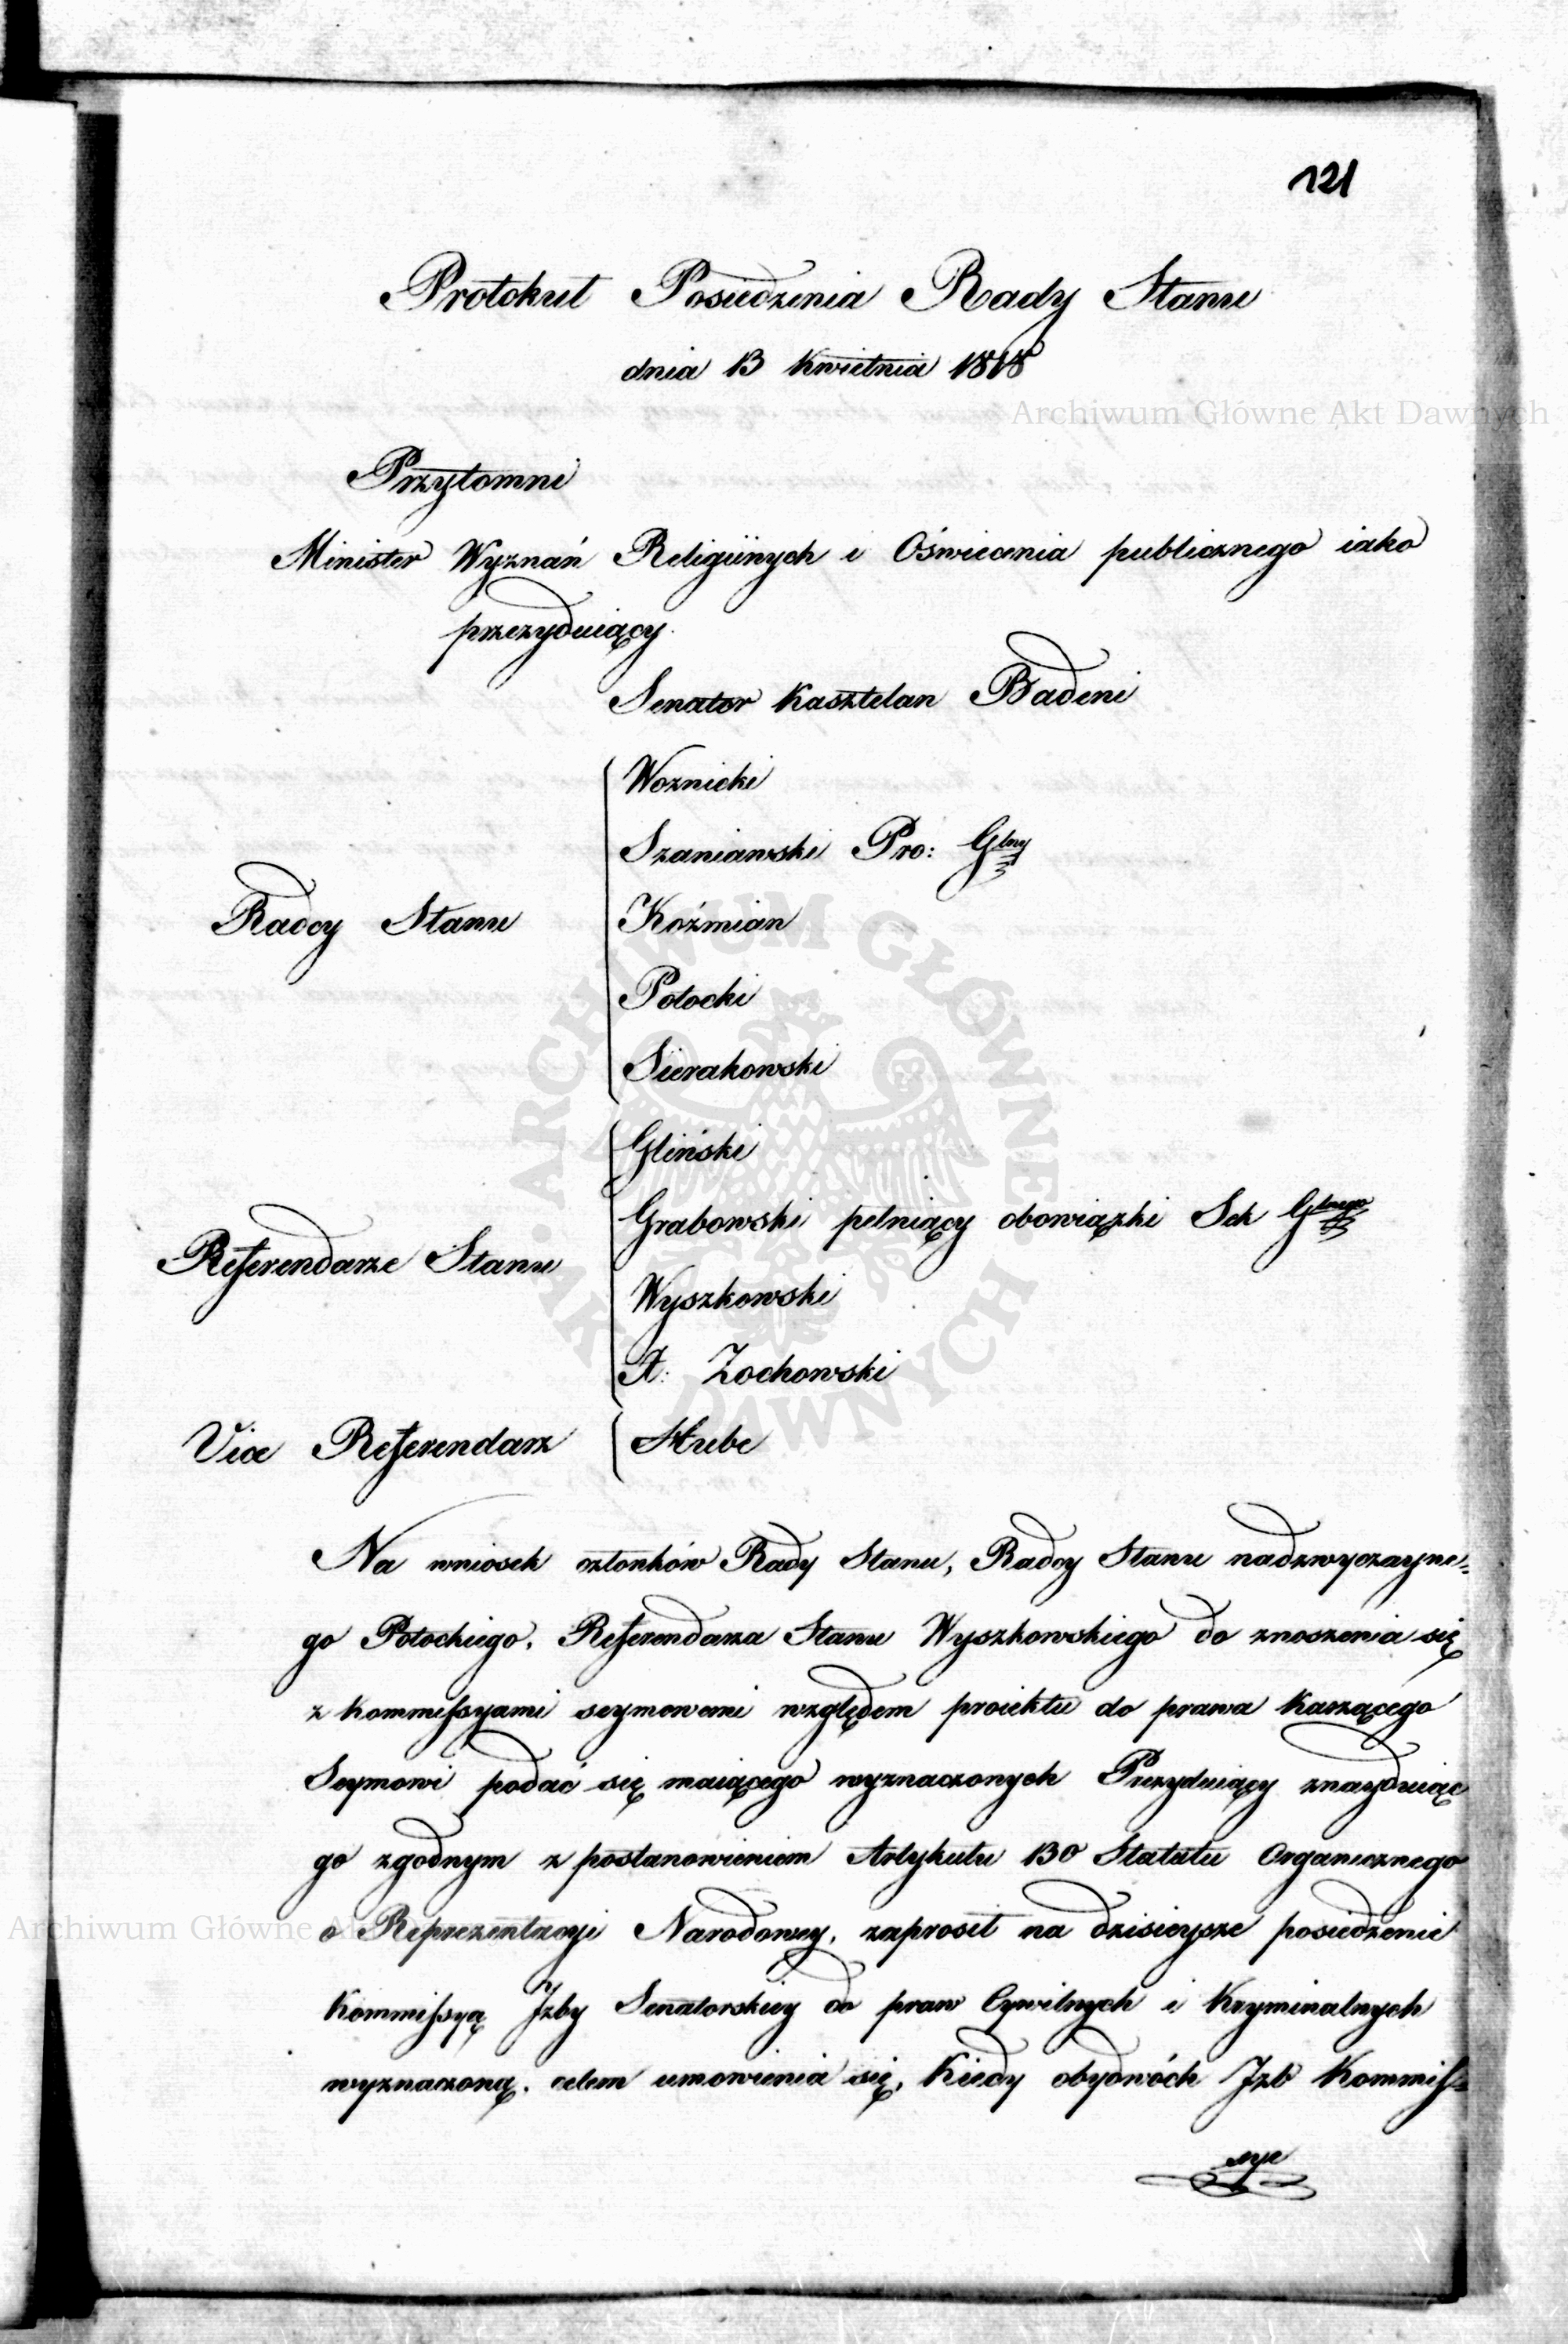 121
Protokuł Posiedzenia Rady Stanu
dnia 13 Kwietnia 1818
Archiwum Główne Akt Dawnych
Przytomni
Minister Wyznań Religiinych i Oświecenia publicznego iako
prezyduiący.
Senator Kasztelan Badeni
Woznicki
Szaniawski Pro: Glny
Radcy Stanu
Koźmian
Potocki
Sierakowski
Gliński
Grabowski pełniący obowiązki Sek Glnego
Referendarze Stanu
Wyszkowski
A: Zochowski
Vice Referendarz
Hube
ARCHIWUM GŁÓWNE AKT DAWNYCH
Na wniosek członków Rady Stanu, Radcy Stanu nadzwyczayne-
go Potockiego, Referendarza Stanu Wyszkowskiego do znoszenia się
z Kommissyami seymowemi względem proiektu do prawa Karzącego
Seymowi podać się maiącego wyznaczonych Prezyduiący znayduiąc
go zgodnym z postanowieniem Artykułu 130 Statutu Organicznego
o Reprezentacyi Narodowey, zaprosił na dzisieysze posiedzenie
Archiwum Główne Ak
Kommissyą Izby Senatorskiey do praw Cywilnych i Kryminalnych
wyznaczoną, celem umowienia się, Kiedy obydwóch Izb Kommis-
sye